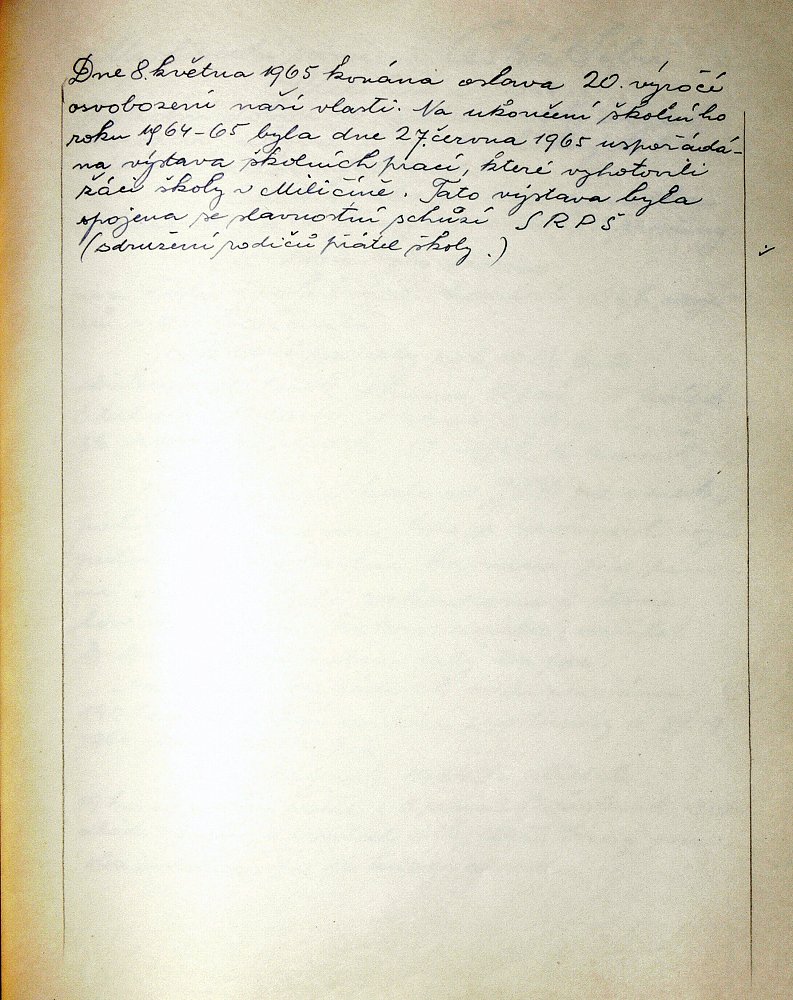 Dne 8. května 1965 konána oslava 20. výročí
osvobození naší vlasti. Na ukončení školního
roku 1964-65 byla dne 27. června 1965 uspořádá-
na výstava školních prací, které vyhotovili
žáci školy v Miličíně. Tato výstava byla
spojena se slavnostní schůzí SRPŠ
(sdružení rodičů přátel školy.)